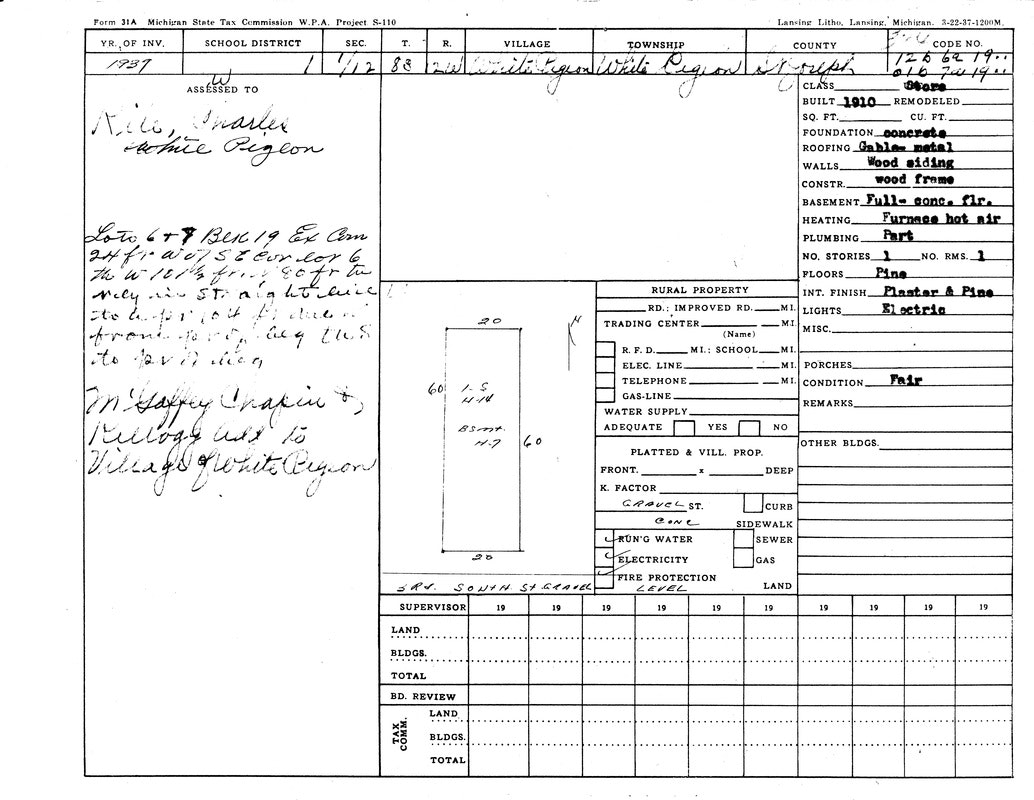 Form 31A Michigan State Tax Commission W.P.A. Project S-110
Lansing Litho, Lansing, Michigan. 3-22-37-1200M.
YR. OF INV. SCHOOL DISTRICT SEC. T. R. VILLAGE TOWNSHIP COUNTY CODE NO.
1937 1 1/12 8S White Pigeon White Pigeon St Joseph 12 b 6a 19..
01b 7a 19..
ASSESSED TO
Charles
White Pigeon
Lots 6 + 7 Blk 19 Ex Com
24 ft W of S E cor lot 6
th W
straight line
to
to
McGaffey Chapin &
Kellogg add to
Village of White Pigeon
CLASS Store
BUILT 1910 REMODELED
SQ. FT. CU. FT.
FOUNDATION concrete
ROOFING Gable- metal
WALLS Wood siding
CONSTR. wood frame
BASEMENT Full- conc. flr.
HEATING Furnace hot air
PLUMBING Part
NO. STORIES 1 NO. RMS. 1
FLOORS Pine
INT. FINISH Plaster & Pine
LIGHTS Electric
MISC.
PORCHES
CONDITION Fair
REMARKS
OTHER BLDGS.
20
N
60
1-S
H-14
Bsmt.
H-7
60
20
SOUTH St GRAVEL
RURAL PROPERTY
RD.; IMPROVED RD. MI.
TRADING CENTER MI.
(Name)
R. F. D. MI.; SCHOOL MI.
ELEC. LINE MI.
TELEPHONE MI.
GAS-LINE
WATER SUPPLY
ADEQUATE YES NO
PLATTED & VILL. PROP.
FRONT. x DEEP
K. FACTOR
GRAVEL ST. CURB
CONC SIDEWALK
RUN'G WATER SEWER
ELECTRICITY GAS
FIRE PROTECTION
LEVEL LAND
SUPERVISOR 19 19 19 19 19 19 19 19 19 19
LAND
BLDGS.
TOTAL
BD. REVIEW
TAX COMM.
LAND
BLDGS.
TOTAL